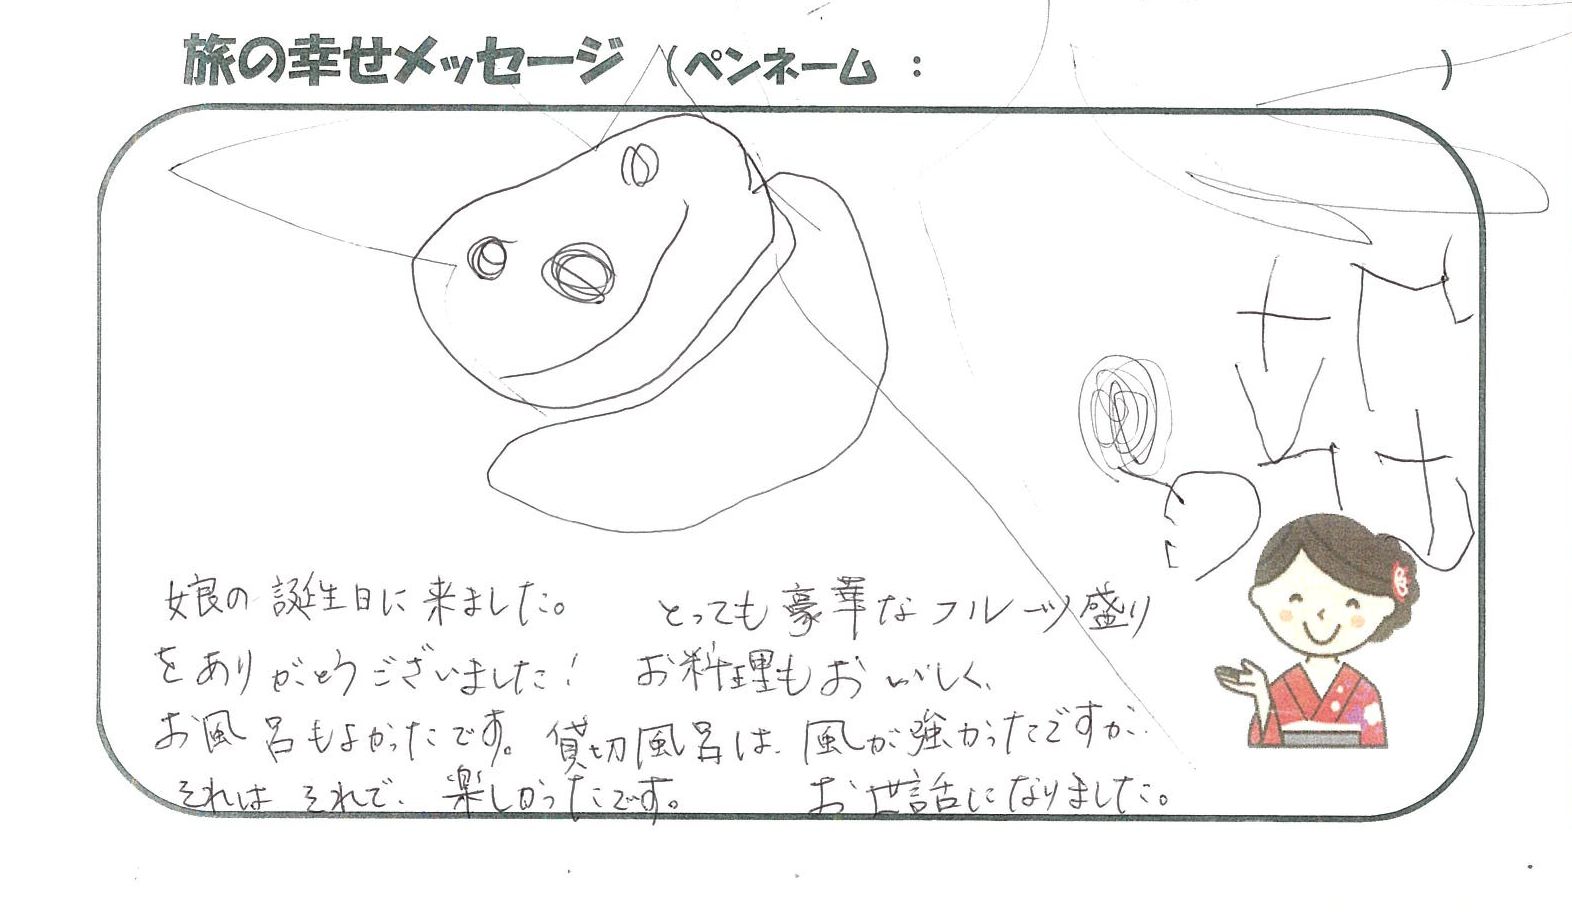 旅の幸せメッセージ (ペンネーム : )
娘の誕生日に来ました。 とっても豪華なフルーツ盛り
をありがとうございました! お料理もおいしく、
お風呂もよかったです。貸切風呂は、風が強かったですが、
それは それで、楽しかったです。 お世話になりました。